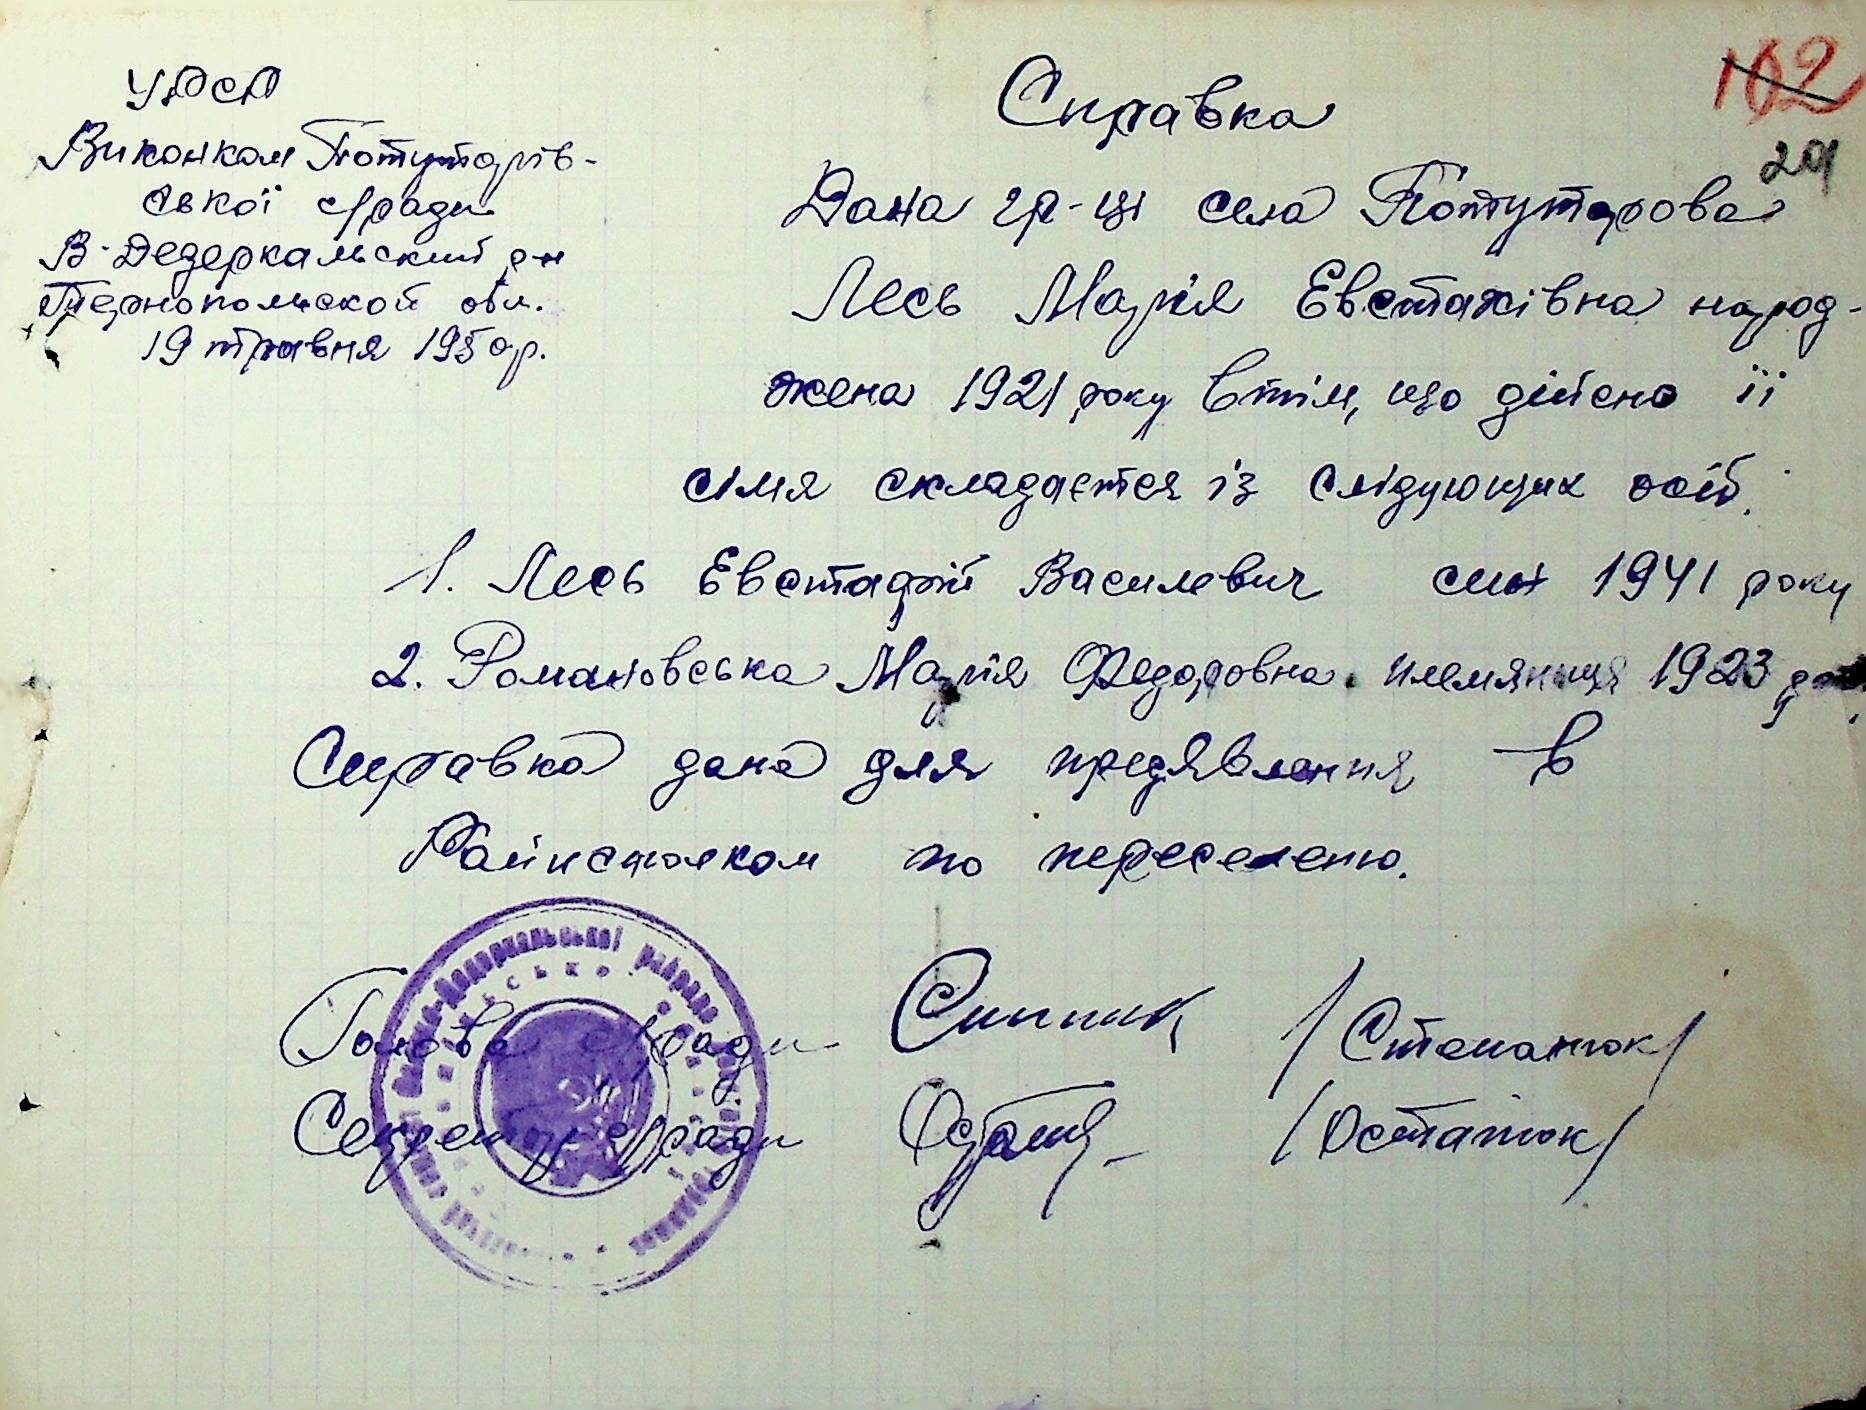 УРСР
Виконком Потуторів-
ської с/ради
В-Дедеркальский р-н
Тернопольской обл.
19 травня 1950р.
102
201
Справка
Дана гр-ці села Потуторова
Лесь Марія Евстахівна народ-
жена 1921 року в тім, що дійсно її
сімя складається із слідующих осіб.
1. Лесь Евстафій Василевич син 1941 року
2. Романовська Марія Федоровна племянниця 1923
Справка дана для предявлення в
Райисполком по переселеню.
Голова с/ради /Степанюк/
Секретар с/ради /Остапюк/